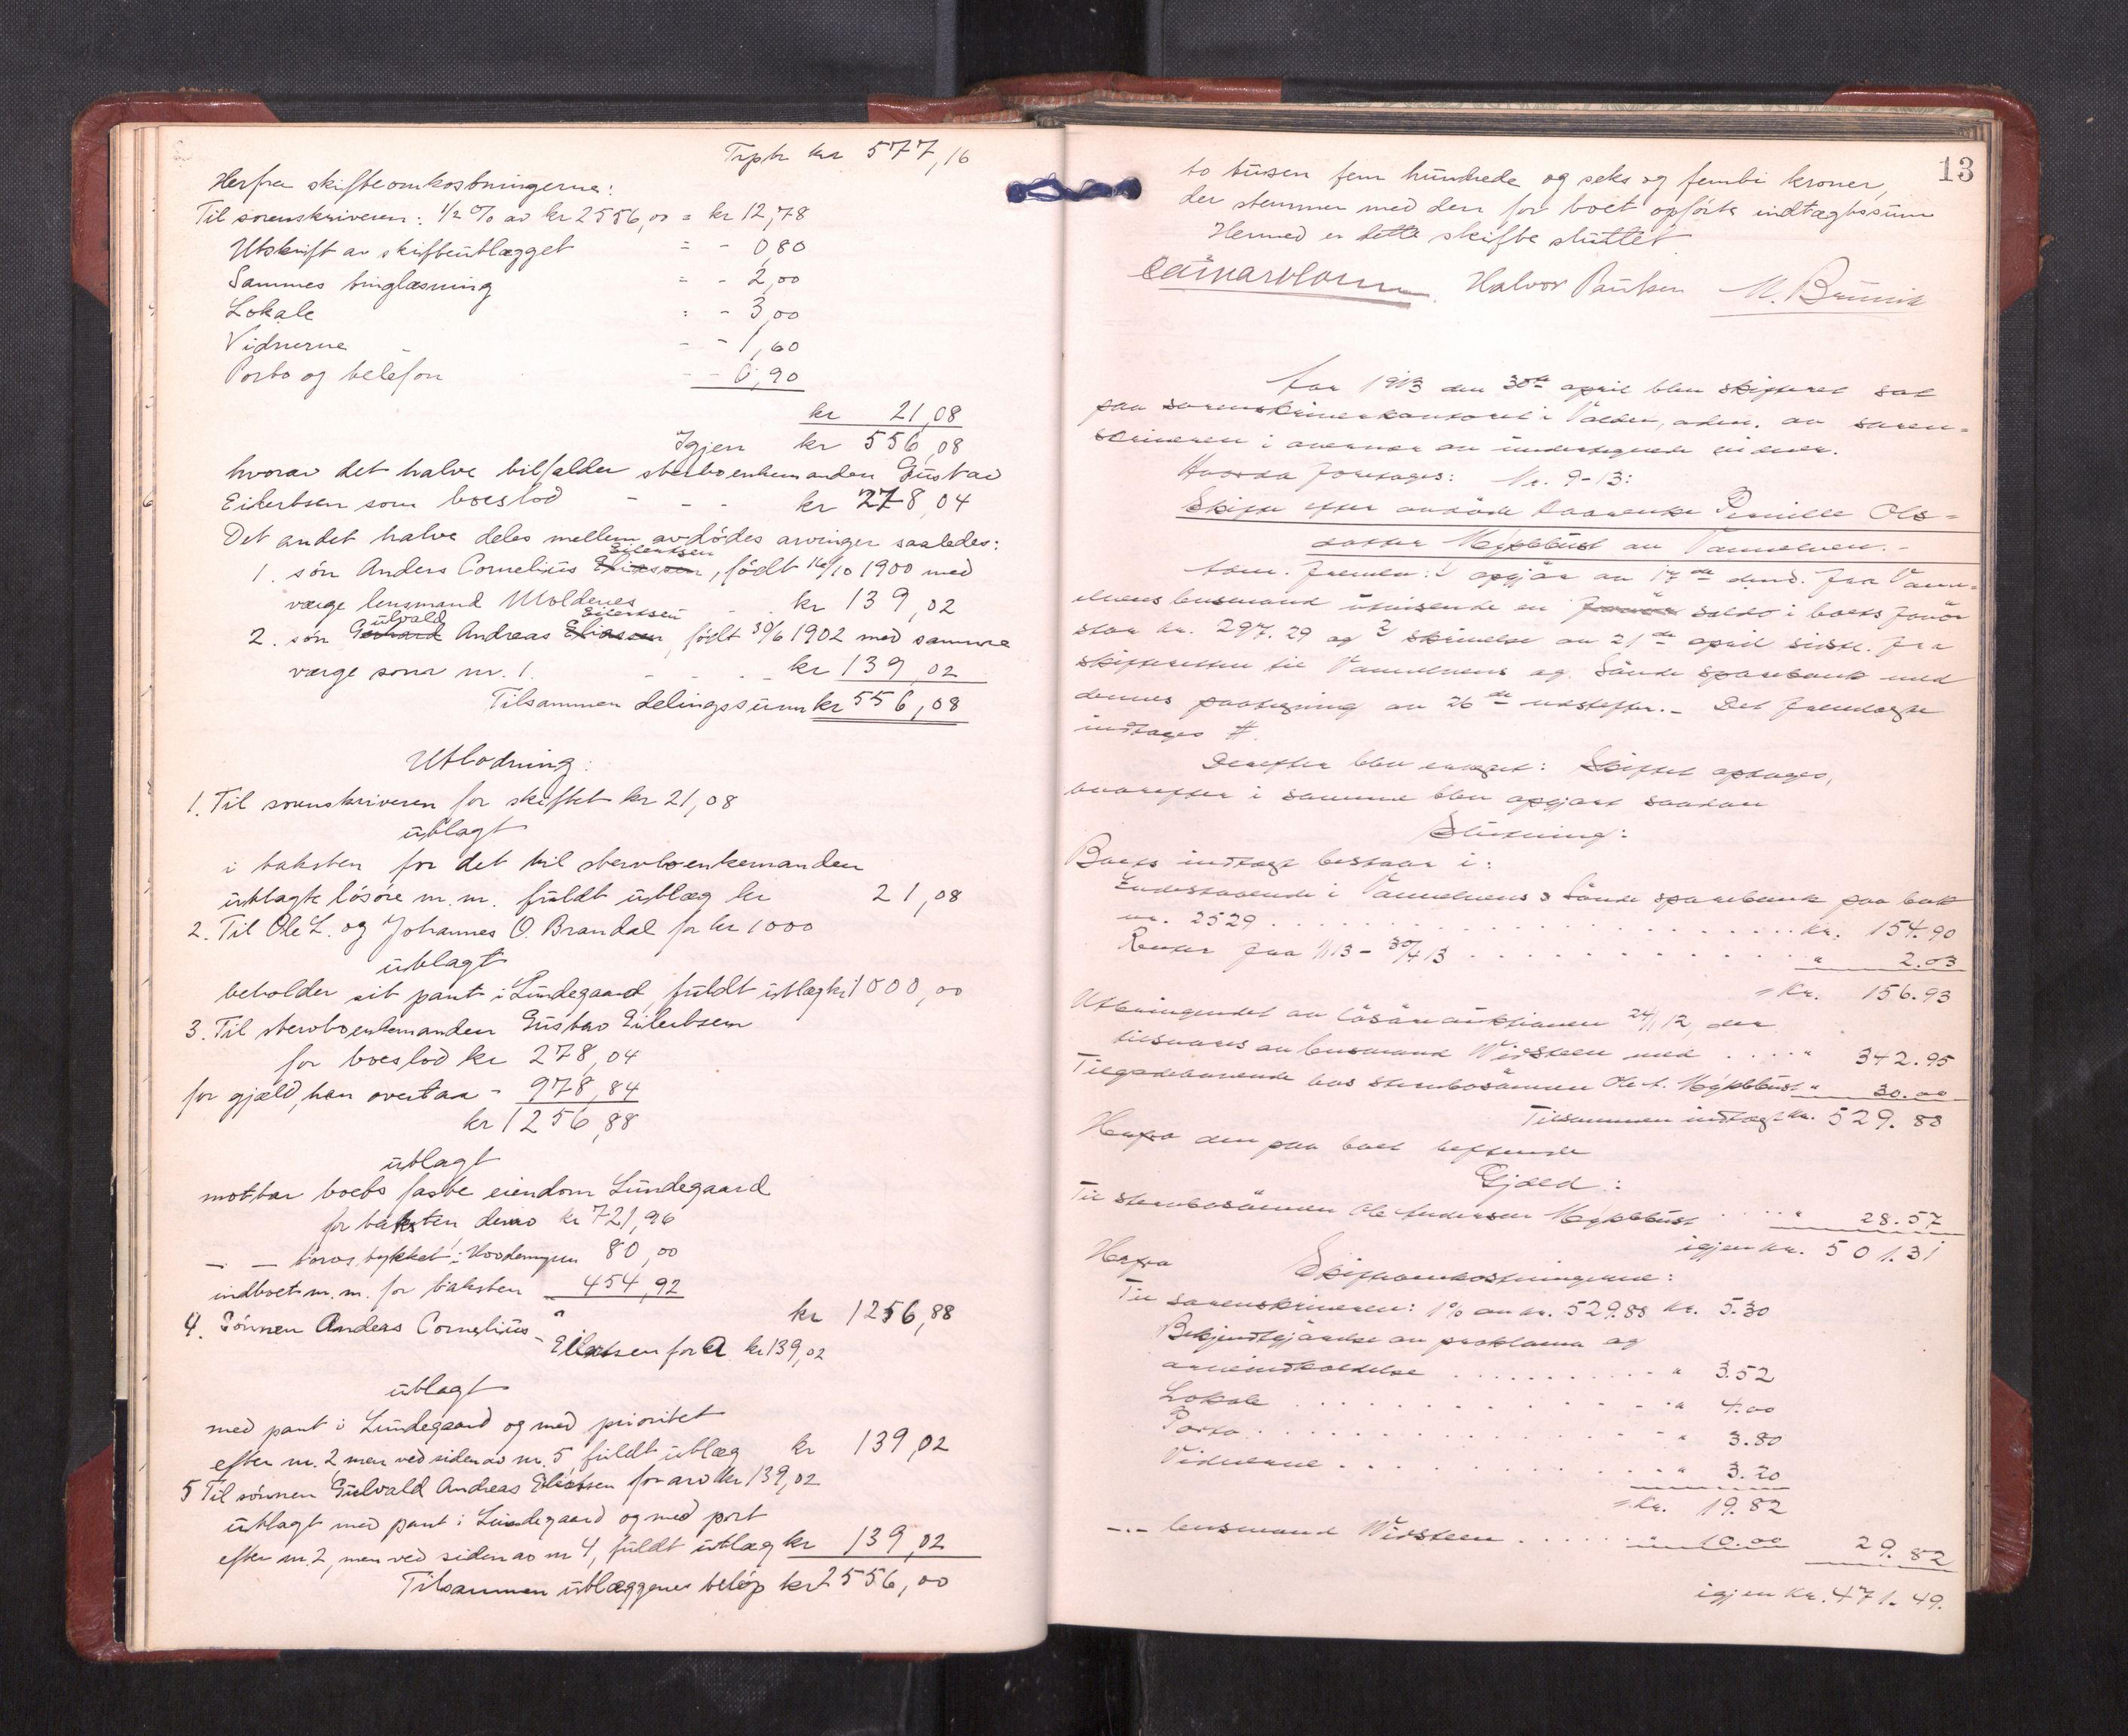 Trptr kr 577,16
Herfra skifteomkostningerne:
Til sorenskriveren: 1/2 % av kr 2556,00 = kr 12,78
Utskrift av skifteutlægget = - 0,80
Sammes tinglæsning = - 2,00
Lokale : - 3,00
Vidnerne - - 1,60
Porto og telefon - - 0,90
kr 21,08
Igjen kr 556,08
hvorav det halve tilfalder sterboenkemanden Gustav
Eilertsen som boeslod - - - kr 278,04
Det andet halve deles mellem avdødes arvinger saaledes:
Eilertsen
1. søn Anders Cornelius Eliassen, født 16/10 1900 med
værge lensmand Moldenes - - kr 139,02
ulvald Eilertsen
2. søn Gerhard Andreas Eliassen, født 30/6 1902 med samme
værge som nr. 1. - - - kr 139,02
Tilsammen delingssum kr 556,08
Utlodning:
1. Til sorenskriveren for skiftet kr 21,08
utlagt
i taksten for det til sterboenkemanden
utlagte løsøre m.m. fuldt utlæg kr 21,08
2. Til Ole L. og Johannes O. Brandal for kr 1000
utlagt
beholder sit pant i Lundegaard, fuldt utlæg kr 1000,00
3. Til sterboenkemanden Gustav Eilertsen
for boeslod kr 278,04
for gjæld, han overtar - 978,84
kr 1256,88
utlagt
mottar boets faste eiendom Lundegaard
for taksten derav kr 721,96
— — torvstykket i Hovdemyren 80,00
indboet m.m. for taksten " 454,92
kr 1256,88
4. Sønnen Andeas Cornelius
Eilertsen for A kr 139,02
utlagt
med pant i Lundegaard og med prioritet
efter nr. 2 men ved siden av nr. 5 fuldt utlæg kr 139,02
5 Til sønnen Gulvald Andreas Eilertsen for arv kr 139,02
utlagt med pant i Lundegaard og med port
efter nr. 2, men ved siden av nr 4, fuldt utlæg kr 139,02
Tilsammen utlæggenes beløp kr 2556,00
13
to tusen fem hundrede og seks og femti kroner,
der stemmer med den for boet opførte indtægtssum
Hermed er dette skifte sluttet
Halvor Paulsen M. Brunvik
Aar 1913 den 30te april blev skifteret sat
paa sorenskriverkontoret i Volden, adm. av soren-
skriveren i overvær av undertegnede vidner.
Hvorda foretages: Nr. 9-13:
Skifte efter avdøde kaarenke Pernille Ols-
datter Myklebust av Vannelven.-
Adm. fremla: 1 opgjør av 17de dmd. fra Vann-
elvens lensmand utvisende en saldo i boets favør
stor kr. 297.29 og 2 skrivelse av 21de april sidstl. fra
skifteretten til Vannelvens og Sande sparebank med
dennes paategning av 26de næstefter.- Det fremlagte
indtages #.
Derefter blev eragtet: Skiftet optages,
hvorefter i samme blev opgjort saadan
Slutning:
Boets indtægt bestaar i:
Indestaaende i Vannelvens & Sande sparebank paa bok
nr. 2529 . . . . . kr. 154.90
Renter fra 1/1 13 - 30/4 13 . . . . . " 2.03
= Kr. 156.93
Utbringendet av løsøreauktionen 24/1 12, der
tilsvares av lensmand Vidsteen med . . . . " 342.95
Tilgodehavende hos sterbosønnen Ole A. Myklebust " 30.00
Tilsammen indtægt kr. 529.88
Herfra den paa boet heftende
Gjæld:
Til sterbosønnen Ole Andersen Myklebust . . . . " 28.57
igjen kr. 501.31
Herfra Skifteomkostningerne:
Til sorenskriveren: 1% av kr. 529.88 kr. 5.30
Bekjendtgjørelse av proklama og
arveindkaldelse . . . . . " 3.52
Lokale . . . . . " 4.00
Porto . . . . . " 3.80
Vidnerne . . . . . " 3.20
= Kr. 19.82
-.- lensmand Vidsteen . . . . . " 10.00 29.82
igjen kr. 471.49.